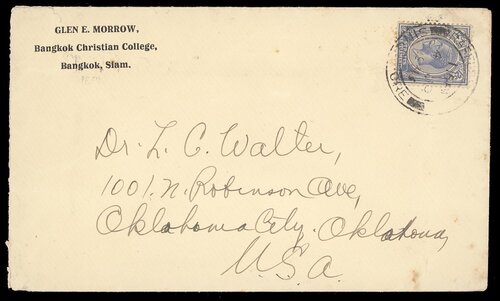 GLEN E. MORROW,
Bangkok Christian College,
Bangkok, Siam.
Dr. L. C. Walter,
1001. N. Robinson Ave,
Oklahoma City. Oklahoma,
U.S.A.